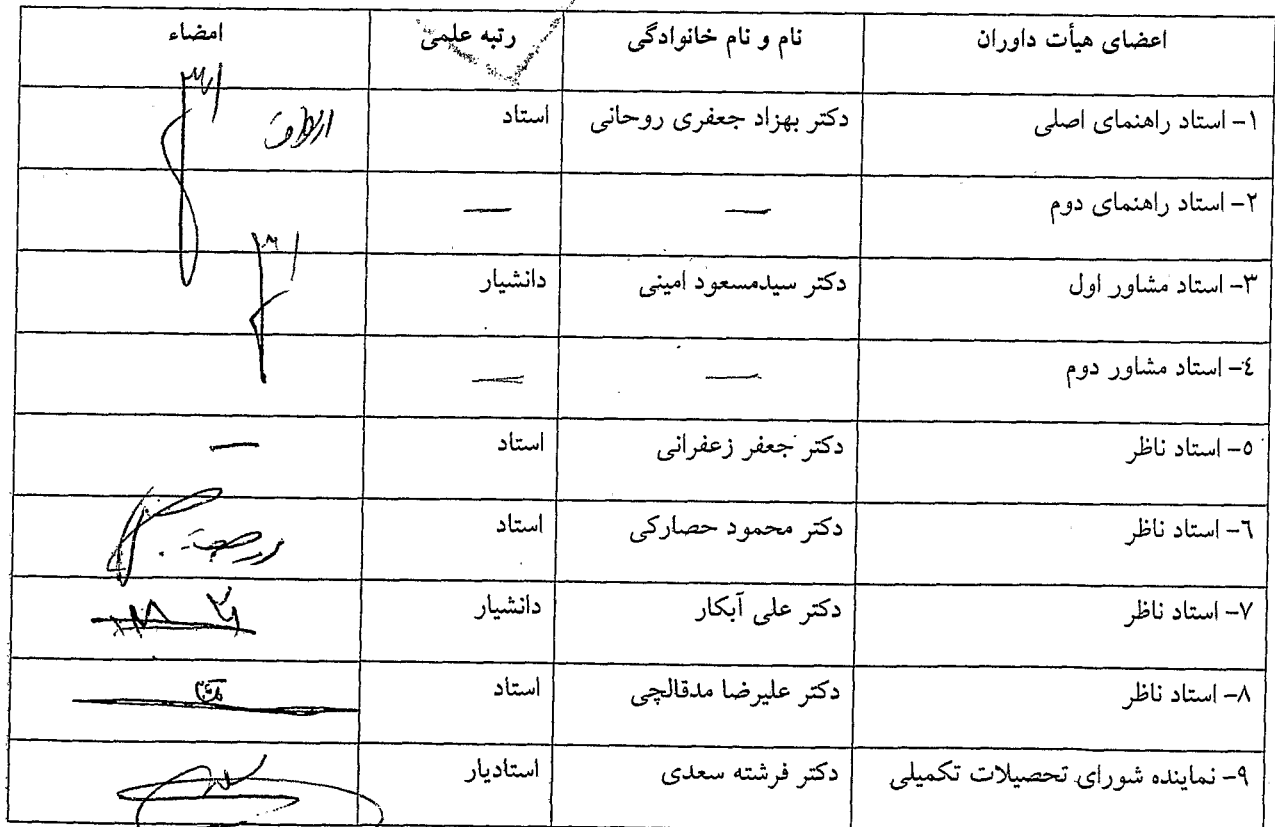 اعضای هیأت داوران نام و نام خانوادگی رتبه علمی امضاء
۱- استاد راهنمای اصلی دکتر بهزاد جعفری روحانی استاد
۲- استاد راهنمای دوم — —
۳- استاد مشاور اول دکتر سیدمسعود امینی دانشیار
٤- استاد مشاور دوم — —
٥- استاد ناظر دکتر جعفر زعفرانی استاد —
٦- استاد ناظر دکتر محمود حصارکی استاد
۷- استاد ناظر دکتر علی آبکار دانشیار
۸- استاد ناظر دکتر علیرضا مدقالچی استاد
۹- نماینده شورای تحصیلات تکمیلی دکتر فرشته سعدی استادیار